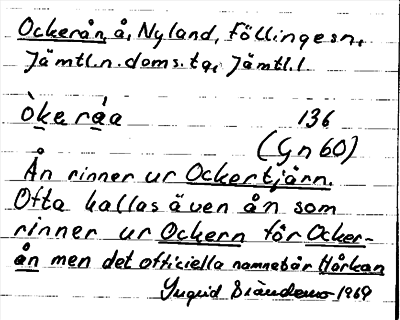 Ockerån, å, Nyland, Föllinge sn,
Jämtl. n. doms. tg, Jämtl. l.
òkeráa 136
(Gn 60)
Ån rinner ur Ockertjärn.
Ofta kallas även ån som
rinner ur Ockern för Ocker-
ån men det officiella namnet är Hårkan
Yngrid 1969